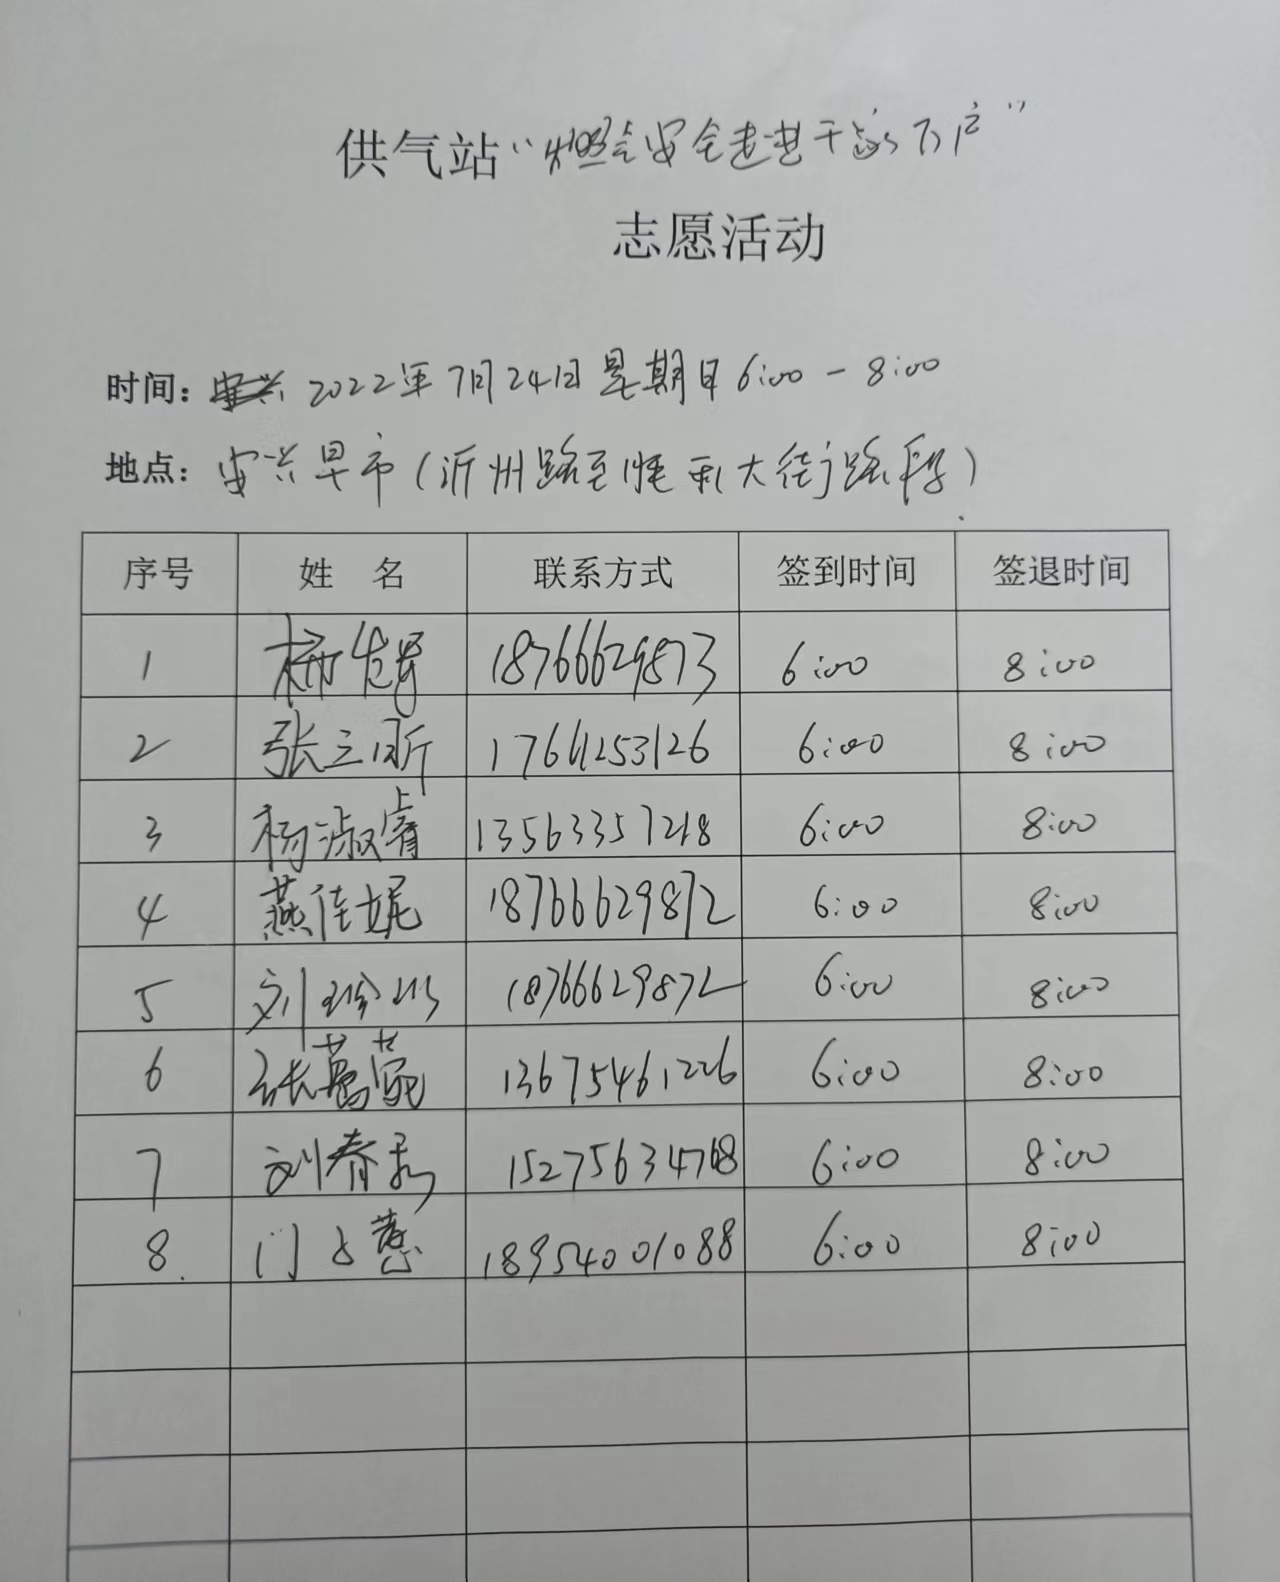 供气站“燃气安全走进千家万户”
志愿活动
时间：2022年7月24日星期日6:00-8:00
地点：安兴早市(沂州路至胜利大街路段)
序号 姓名 联系方式 签到时间 签退时间
1 18766629873 6:00 8:00
2 张三昕 17661253126 6:00 8:00
3 杨淑睿 13563357218 6:00 8:00
4 燕佳妮 18766629872 6:00 8:00
5 刘 18766629872 6:00 8:00
6 张 13675461226 6:00 8:00
7 刘春 15275634768 6:00 8:00
8 门 慧 18954001088 6:00 8:00